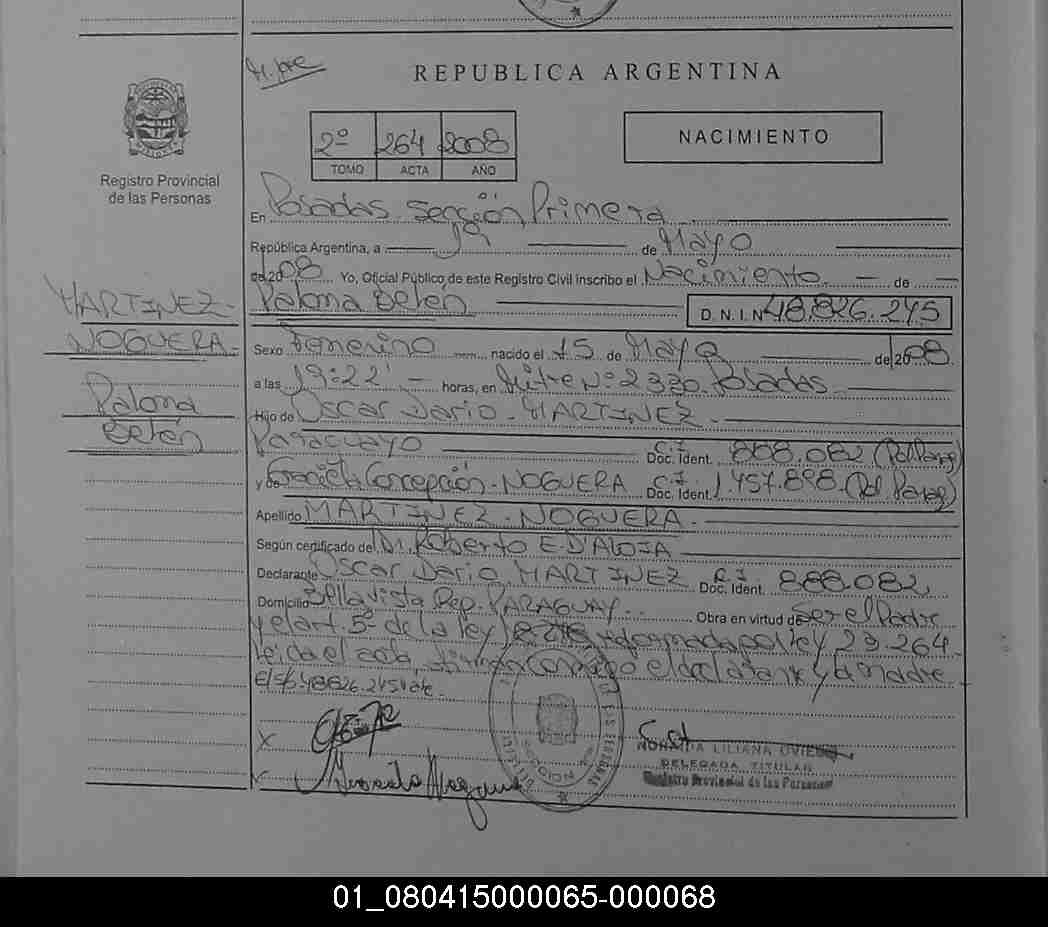 REPUBLICA ARGENTINA
2º 264 2008
TOMO ACTA AÑO
NACIMIENTO
Registro Provincial
de las Personas
En Posadas Sección Primera
República Argentina, a 19 de Mayo
de 2008 Yo, Oficial Público de este Registro Civil inscribo el Nacimiento de
Paloma Belén D.N.I.Nº 48.826.245
MARTINEZ
NOGUERA
Paloma
Belén
Sexo Femenino nacido el 15 de Mayo de 2008
a las 19:22 horas, en Mitre Nº 2330 Posadas
Hijo de Oscar Dario MARTINEZ
Paraguayo C.I. Doc. Ident. 868.082 (Pol Parag)
y de Graciela Concepción NOGUERA C.I. Doc. Ident. 1.457.898 (Pol Parag)
Apellido MARTINEZ NOGUERA
Según certificado de Dr. Roberto E. D'ALOIA
Declarante Oscar Dario MARTINEZ C.I. Doc. Ident. 868.082
Domicilio Bella Vista Rep. PARAGUAY Obra en virtud de Ser el Padre
y el art. 5º de la ley reformada por ley 23.264
Leída el acta, firman conmigo el declarante y la madre
48826.245 vale
X
LILIANA OVIEDO
DELEGADA TITULAR
Registro Provincial de las Personas
01_080415000065-000068